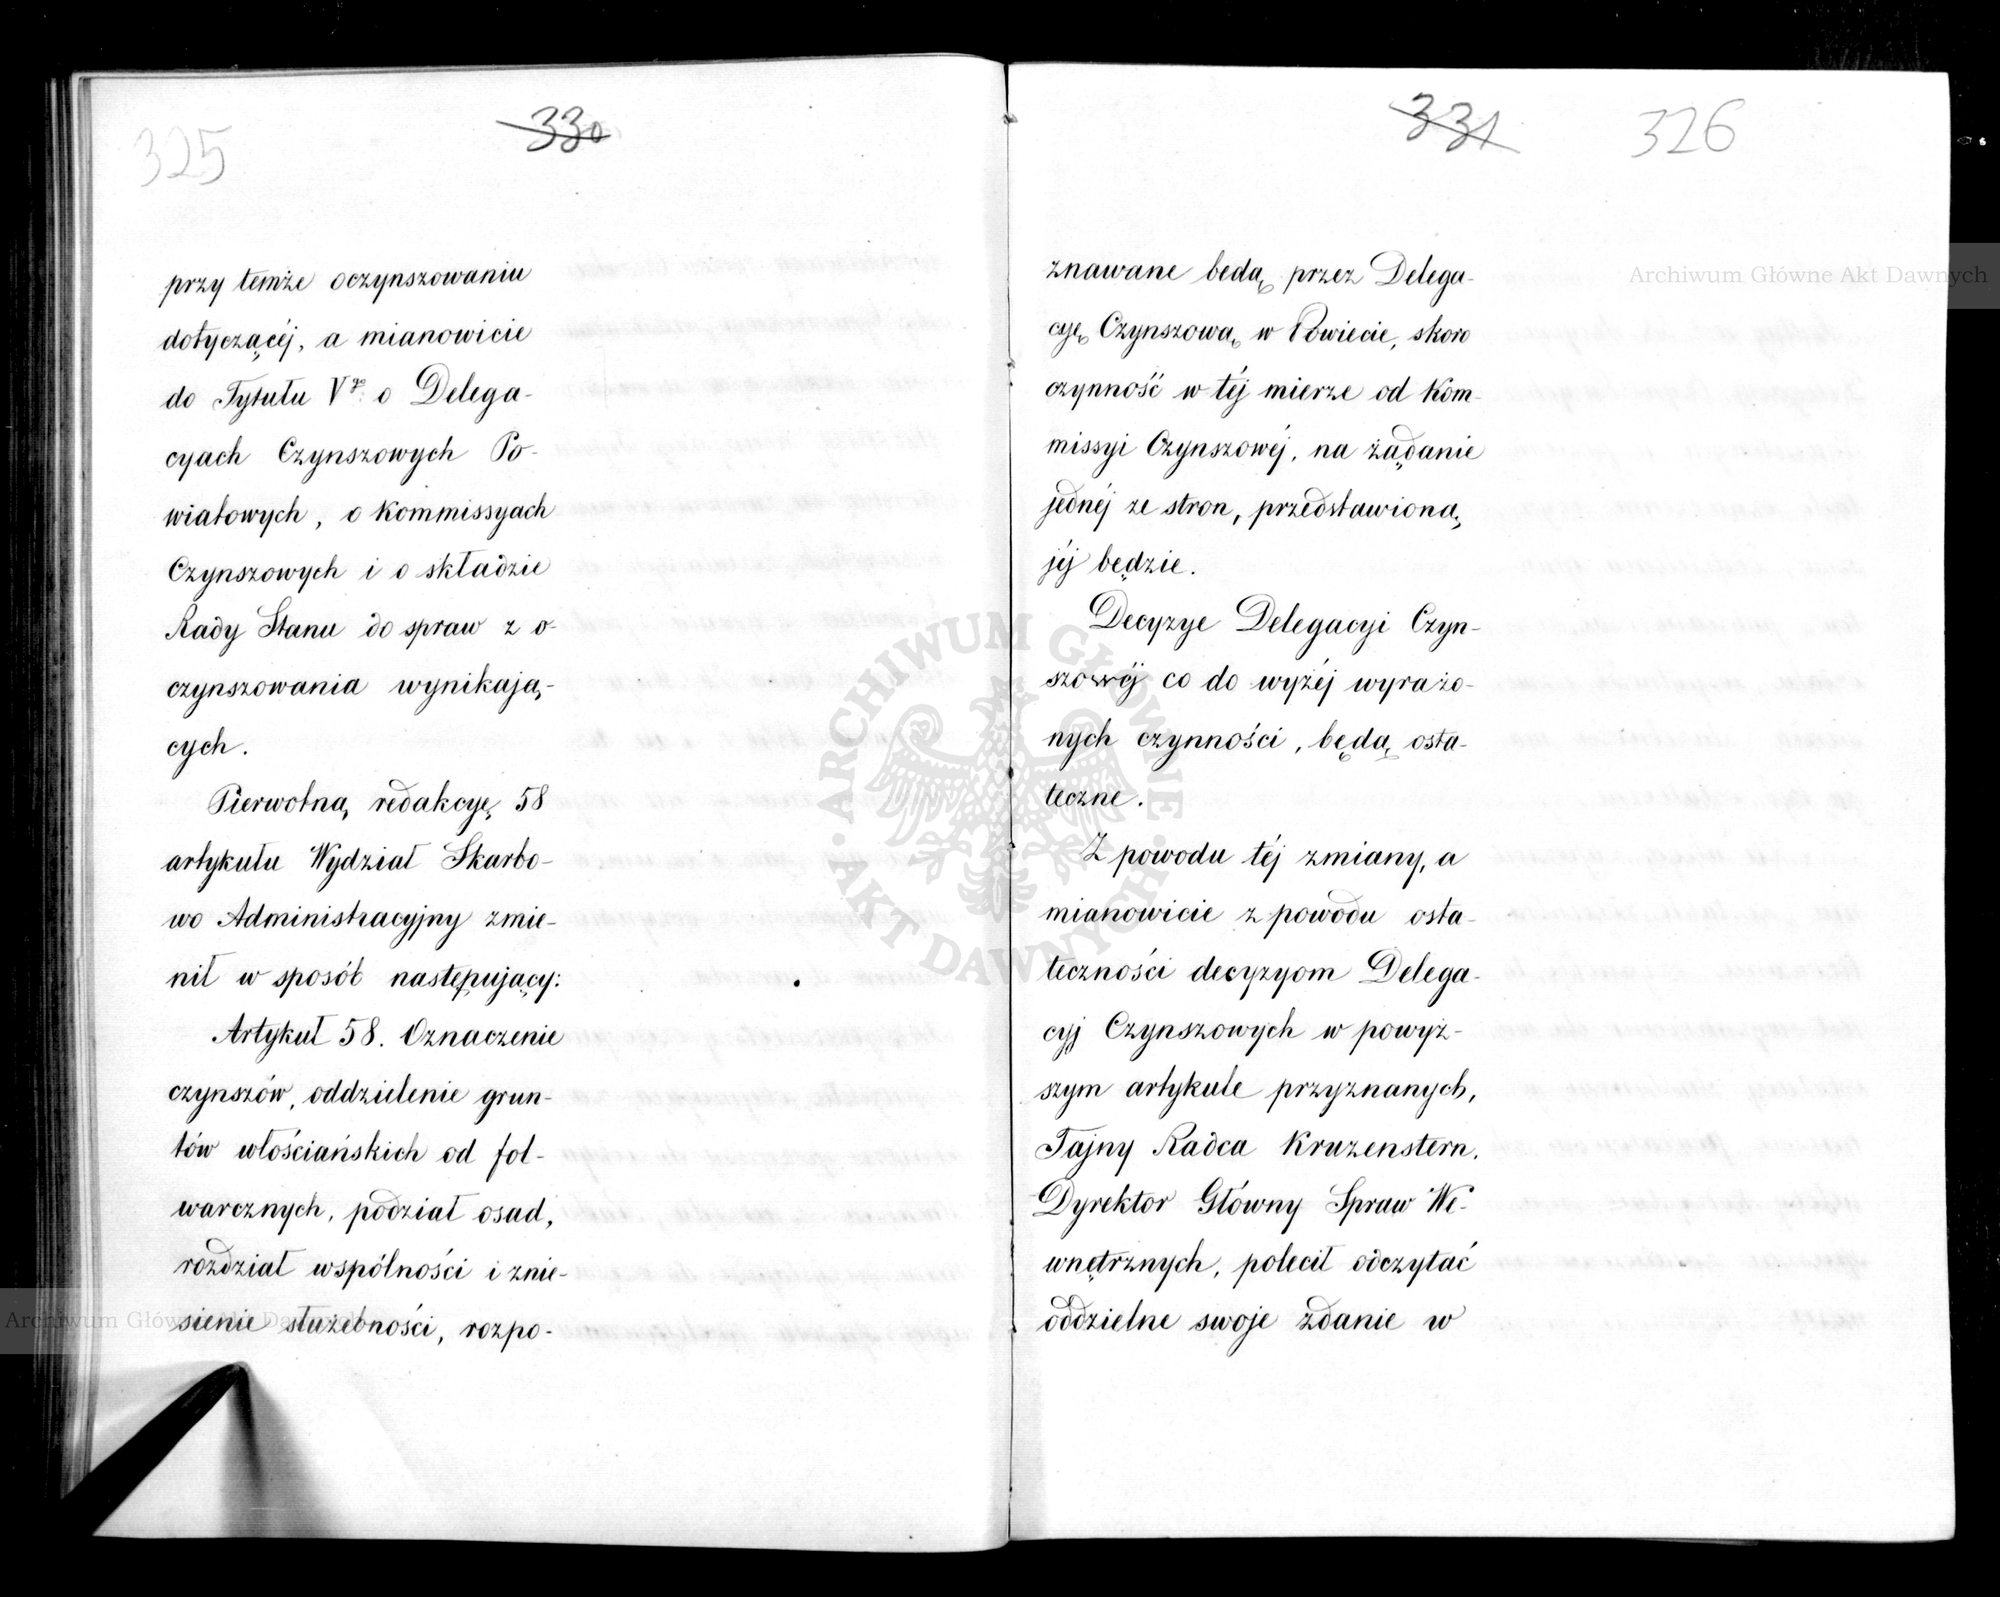 325
330
przy temże oczynszowaniu
dotyczącéj, a mianowicie
do Tytułu Vgo o Delega-
cyach Czynszowych Po-
wiatowych, o Kommissyach
Czynszowych i o składzie
Rady Stanu do spraw z o-
czynszowania wynikają-
cych.
Pierwotną redakcyę 58
artykułu Wydział Skarbo-
wo Administracyjny zmie-
nił w sposób następujący:
Artykuł 58. Oznaczenie
czynszów, oddzielenie grun-
tów włościańskich od fol-
warcznych, podział osad,
rozdział wspólności i znie-
sienie służebności, rozpo-
331
326
znawane będą przez Delega-
cyę Czynszową w Powiecie, skoro
czynność w téj mierze od Kom-
missyi Czynszowéj, na żądanie
jednéj ze stron, przedstawioną
jéj będzie.
Decyzye Delegacyi Czyn-
szowéj co do wyżéj wyrażo-
nych czynności, będą osta-
teczne.
Z powodu téj zmiany, a
mianowicie z powodu osta-
teczności decyzyom Delega-
cyj Czynszowych w powyż-
szym artykule przyznanych,
Tajny Radca Kruzenstern,
Dyrektor Główny Spraw We-
wnętrznych, polecił odczytać
oddzielne swoje zdanie w
Archiwum Główne Akt Dawnych
Archiwum Główne Akt Dawnych
ARCHIWUM GŁÓWNE AKT DAWNYCH